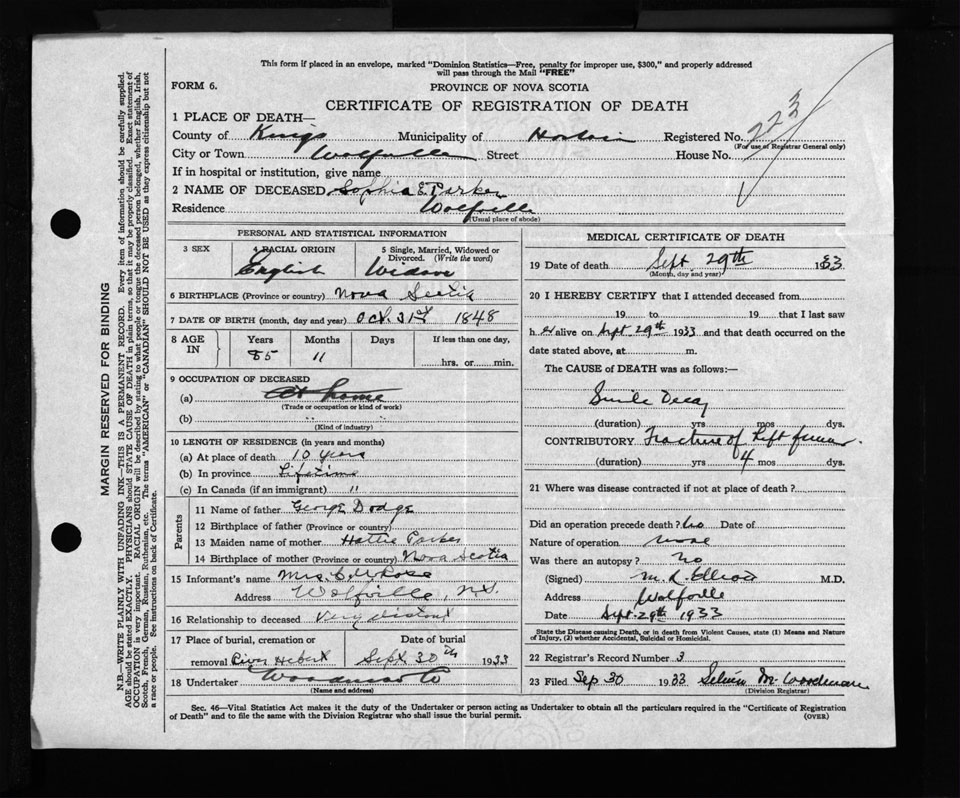 This form if placed in an envelope, marked "Dominion Statistics—Free, penalty for improper use, $300," and properly addressed
will pass through the Mail "FREE"
FORM 6.
PROVINCE OF NOVA SCOTIA
CERTIFICATE OF REGISTRATION OF DEATH
1 PLACE OF DEATH—
County of Kings Municipality of Horton Registered No. 223
(For use of Registrar General only)
City or Town Wolfville Street House No.
If in hospital or institution, give name
2 NAME OF DECEASED Sophia E Parker
Residence Wolfville
(Usual place of abode)
PERSONAL AND STATISTICAL INFORMATION
3 SEX 4 RACIAL ORIGIN 5 Single, Married, Widowed or
Divorced. (Write the word)
English Widow
6 BIRTHPLACE (Province or country) Nova Scotia
7 DATE OF BIRTH (month, day and year) Oct. 31st 1848
8 AGE IN Years Months Days If less than one day,
85 11 hrs. or min.
9 OCCUPATION OF DECEASED
(a) At home
(Trade or occupation or kind of work)
(b) " "
(Kind of industry)
10 LENGTH OF RESIDENCE (in years and months)
(a) At place of death 10 years
(b) In province Lifetime
(c) In Canada (if an immigrant) "
Parents
11 Name of father George Dodge
12 Birthplace of father (Province or country)
13 Maiden name of mother Hattie Parker
14 Birthplace of mother (Province or country) Nova Scotia
15 Informant's name Mrs. Rose
Address Wolfville, N.S.
16 Relationship to deceased Very distant
17 Place of burial, cremation or Date of burial
removal River Hebert Sept 30th 1933
18 Undertaker
(Name and address)
MEDICAL CERTIFICATE OF DEATH
19 Date of death Sept 29th 1933
(Month, day and year)
20 I HEREBY CERTIFY that I attended deceased from
19 to 19 that I last saw
h er alive on Sept 29th 1933 and that death occurred on the
date stated above, at m.
The CAUSE of DEATH was as follows:—
Senile Decay
(duration) yrs mos dys.
CONTRIBUTORY Fracture of Left femur.
(duration) yrs 4 mos dys.
21 Where was disease contracted if not at place of death?
Did an operation precede death? no Date of
Nature of operation none
Was there an autopsy? no
(Signed) M. R. Elliott M.D.
Address Wolfville
Date Sept. 29th 1933
State the Disease causing Death, or in death from Violent Causes, state (1) Means and Nature
of Injury, (2) whether Accidental, Suicidal or Homicidal.
22 Registrar's Record Number 3
23 Filed Sep 30 1933 M. Woodman
(Division Registrar)
Sec. 46—Vital Statistics Act makes it the duty of the Undertaker or person acting as Undertaker to obtain all the particulars required in the "Certificate of Registration
of Death" and to file the same with the Division Registrar who shall issue the burial permit. (OVER)
MARGIN RESERVED FOR BINDING
N.B.—WRITE PLAINLY WITH UNFADING INK—THIS IS A PERMANENT RECORD. Every item of information should be carefully supplied.
AGE should be stated EXACTLY. PHYSICIANS should STATE CAUSE OF DEATH in plain terms, so that it may be properly classified. Exact statement of
OCCUPATION is very important. RACIAL ORIGIN will be described by stating to what people or tongue the deceased person belonged, whether English, Irish,
Scotch, French, German, Russian, Ruthenian, etc. The terms "AMERICAN" or "CANADIAN" SHOULD NOT BE USED as they express citizenship but not
a race or people. See instructions on back of Certificate.